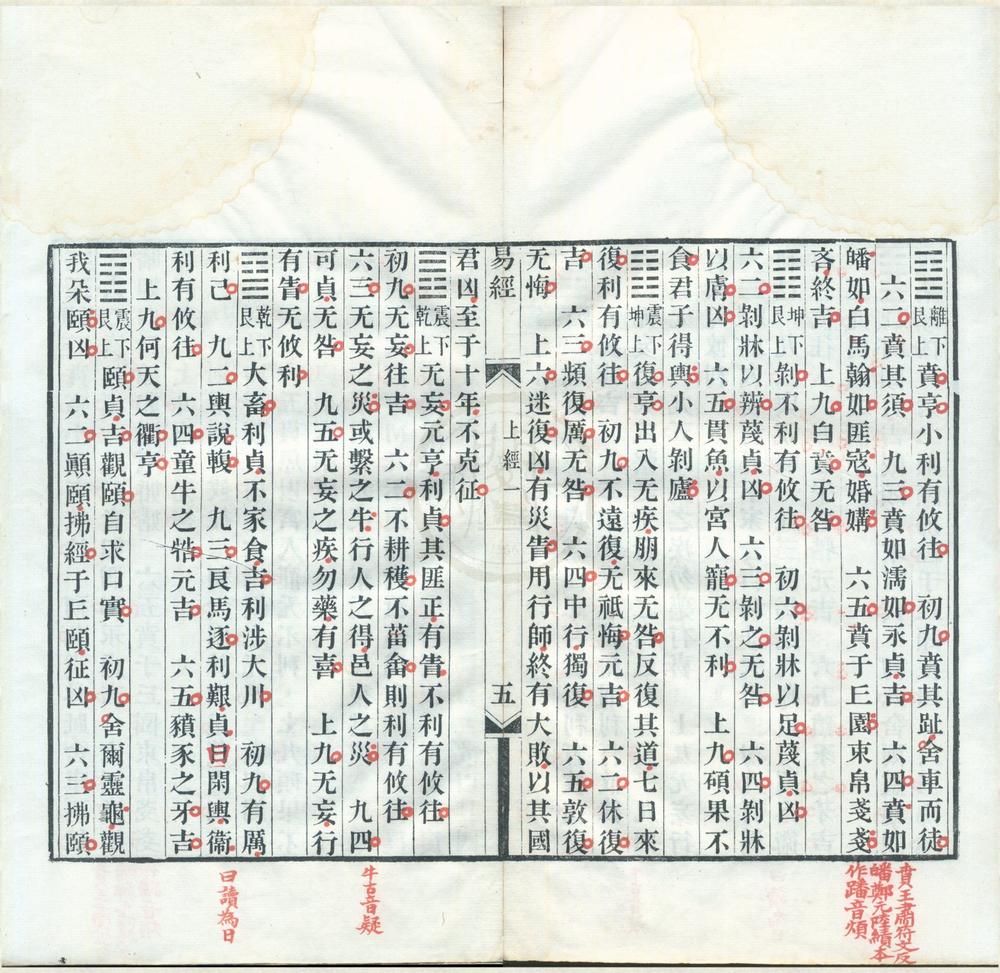 ䷕離下艮上賁亨小利有攸往　初九賁其趾舍車而徒
六二賁其須　九三賁如濡如永貞吉　六四賁如
皤如白馬翰如匪寇婚媾　六五賁于丘園束帛戔戔
吝終吉　上九白賁无咎
䷖坤下艮上剝不利有攸往　初六剝牀以足蔑貞凶
六二剝牀以辨蔑貞凶　六三剝之无咎　六四剝牀
以膚凶　六五貫魚以宮人寵无不利　上九碩果不
食君子得輿小人剝廬
䷗震下坤上復亨出入无疾朋來无咎反復其道七日來
復利有攸往　初九不遠復无祗悔元吉　六二休復
吉　六三頻復厲无咎　六四中行獨復　六五敦復
无悔　上六迷復凶有災眚用行師終有大敗以其國
易經　上經　五
君凶至于十年不克征
䷘震下乾上无妄元亨利貞其匪正有眚不利有攸往
初九无妄往吉　六二不耕穫不菑畬則利有攸往
六三无妄之災或繫之牛行人之得邑人之災　九四
可貞无咎　九五无妄之疾勿藥有喜　上九无妄行
有眚无攸利
䷙乾下艮上大畜利貞不家食吉利涉大川　初九有厲
利己　九二輿說輹　九三良馬逐利艱貞曰閑輿衞
利有攸往　六四童牛之牿元吉　六五豶豕之牙吉
上九何天之衢亨
䷚震下艮上頤貞吉觀頤自求口實　初九舍爾靈龜觀
我朵頤凶　六二顛頤拂經于丘頤征凶　六三拂頤
賁王肅符文反
皤鄭元陸績本
作蹯音煩
牛古音疑
曰讀為日